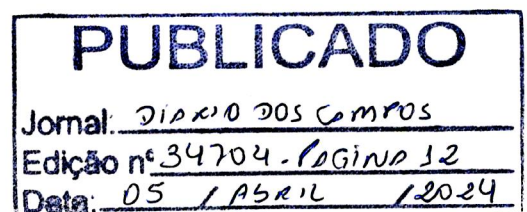 PUBLICADO
Jornal: DIARIO DOS CAMPOS
Edição nº 34704 - PAGINA 12
Data: 05 / ABRIL / 2024